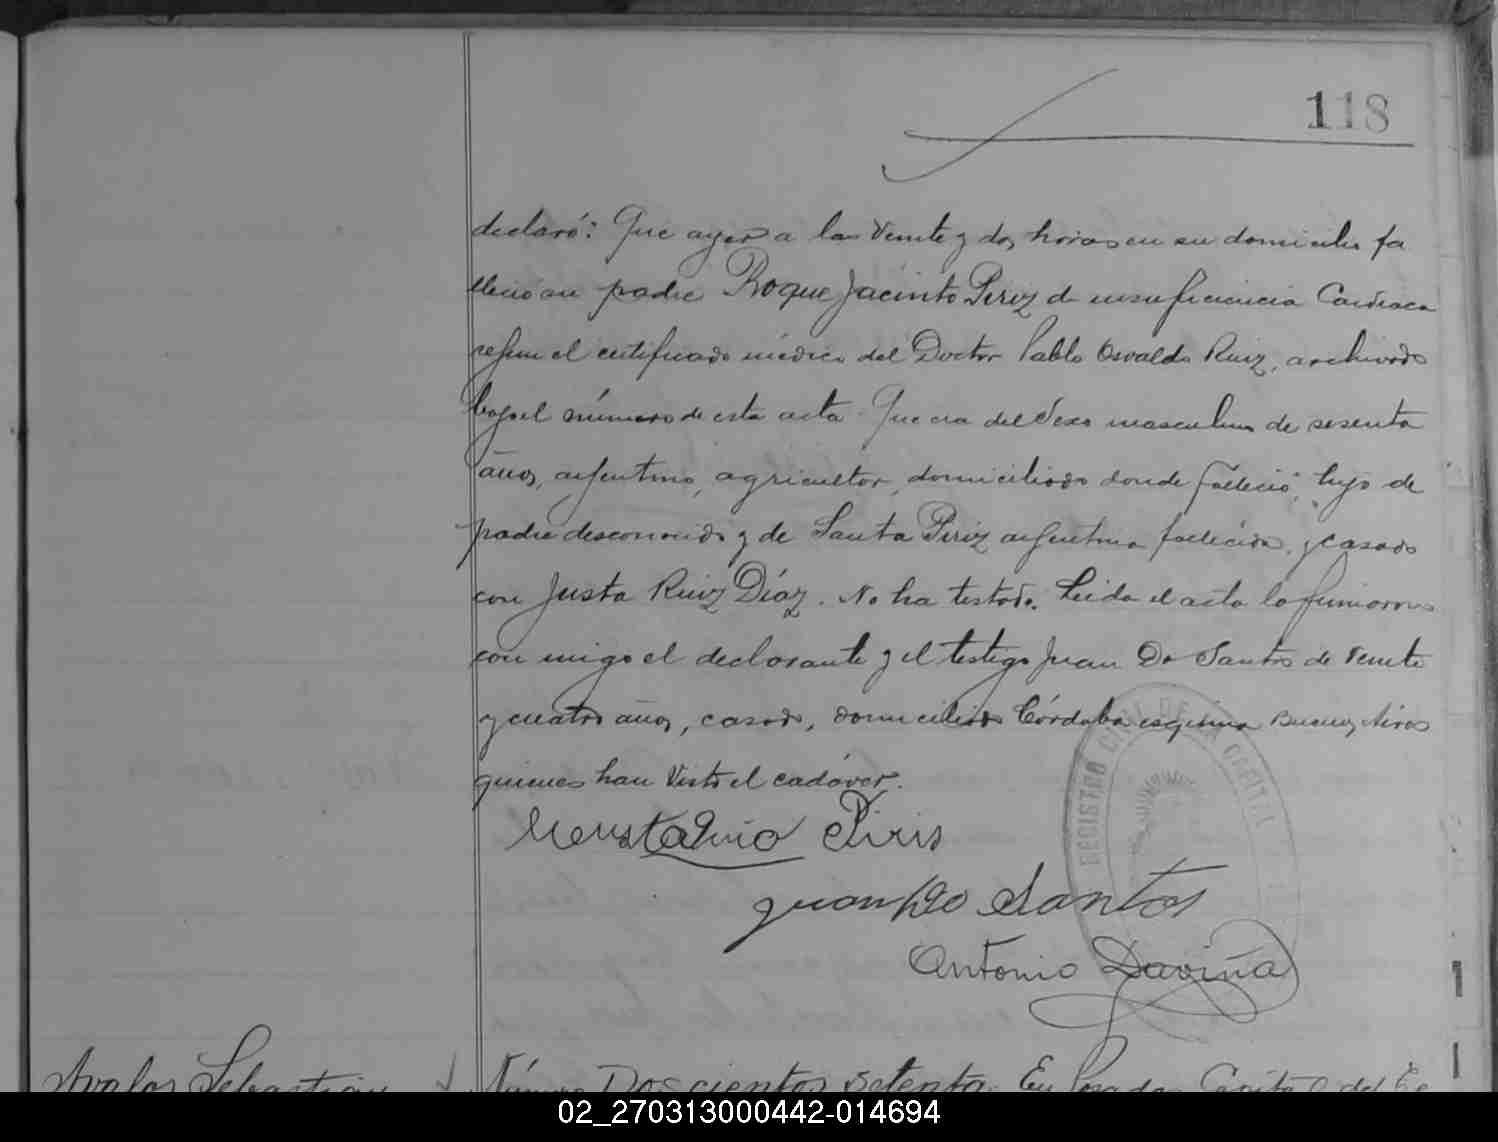 118
declaró: Que ayer a las veinte y dos horas en su domicilio fa
lleció su padre Roque Jacinto Perez de insuficiencia Cardiaca
segun el certificado médico del Doctor Pablo Osvaldo Ruiz, archivado
bajo el número de esta acta. Que era del sexo masculino de sesenta
años, argentino, agricultor, domiciliado donde falleció, hijo de
padre desconocido y de Santa Perez argentina fallecida, y casado
con Justa Ruiz Díaz. No ha testado. Leida el acta la firmaron
con migo el declarante y el testigo Juan Do Santos de veinte
y cuatro años, casado, domiciliado Córdoba esquina Buenos Aires
quienes han visto el cadáver.
Piris
Juan Do Santos
Antonio Daviña
REGISTRO CIVIL DE LA CAPITAL
Avalos Sebastian
Número Doscientos setenta. En Posadas Capital del
02_270313000442-014694